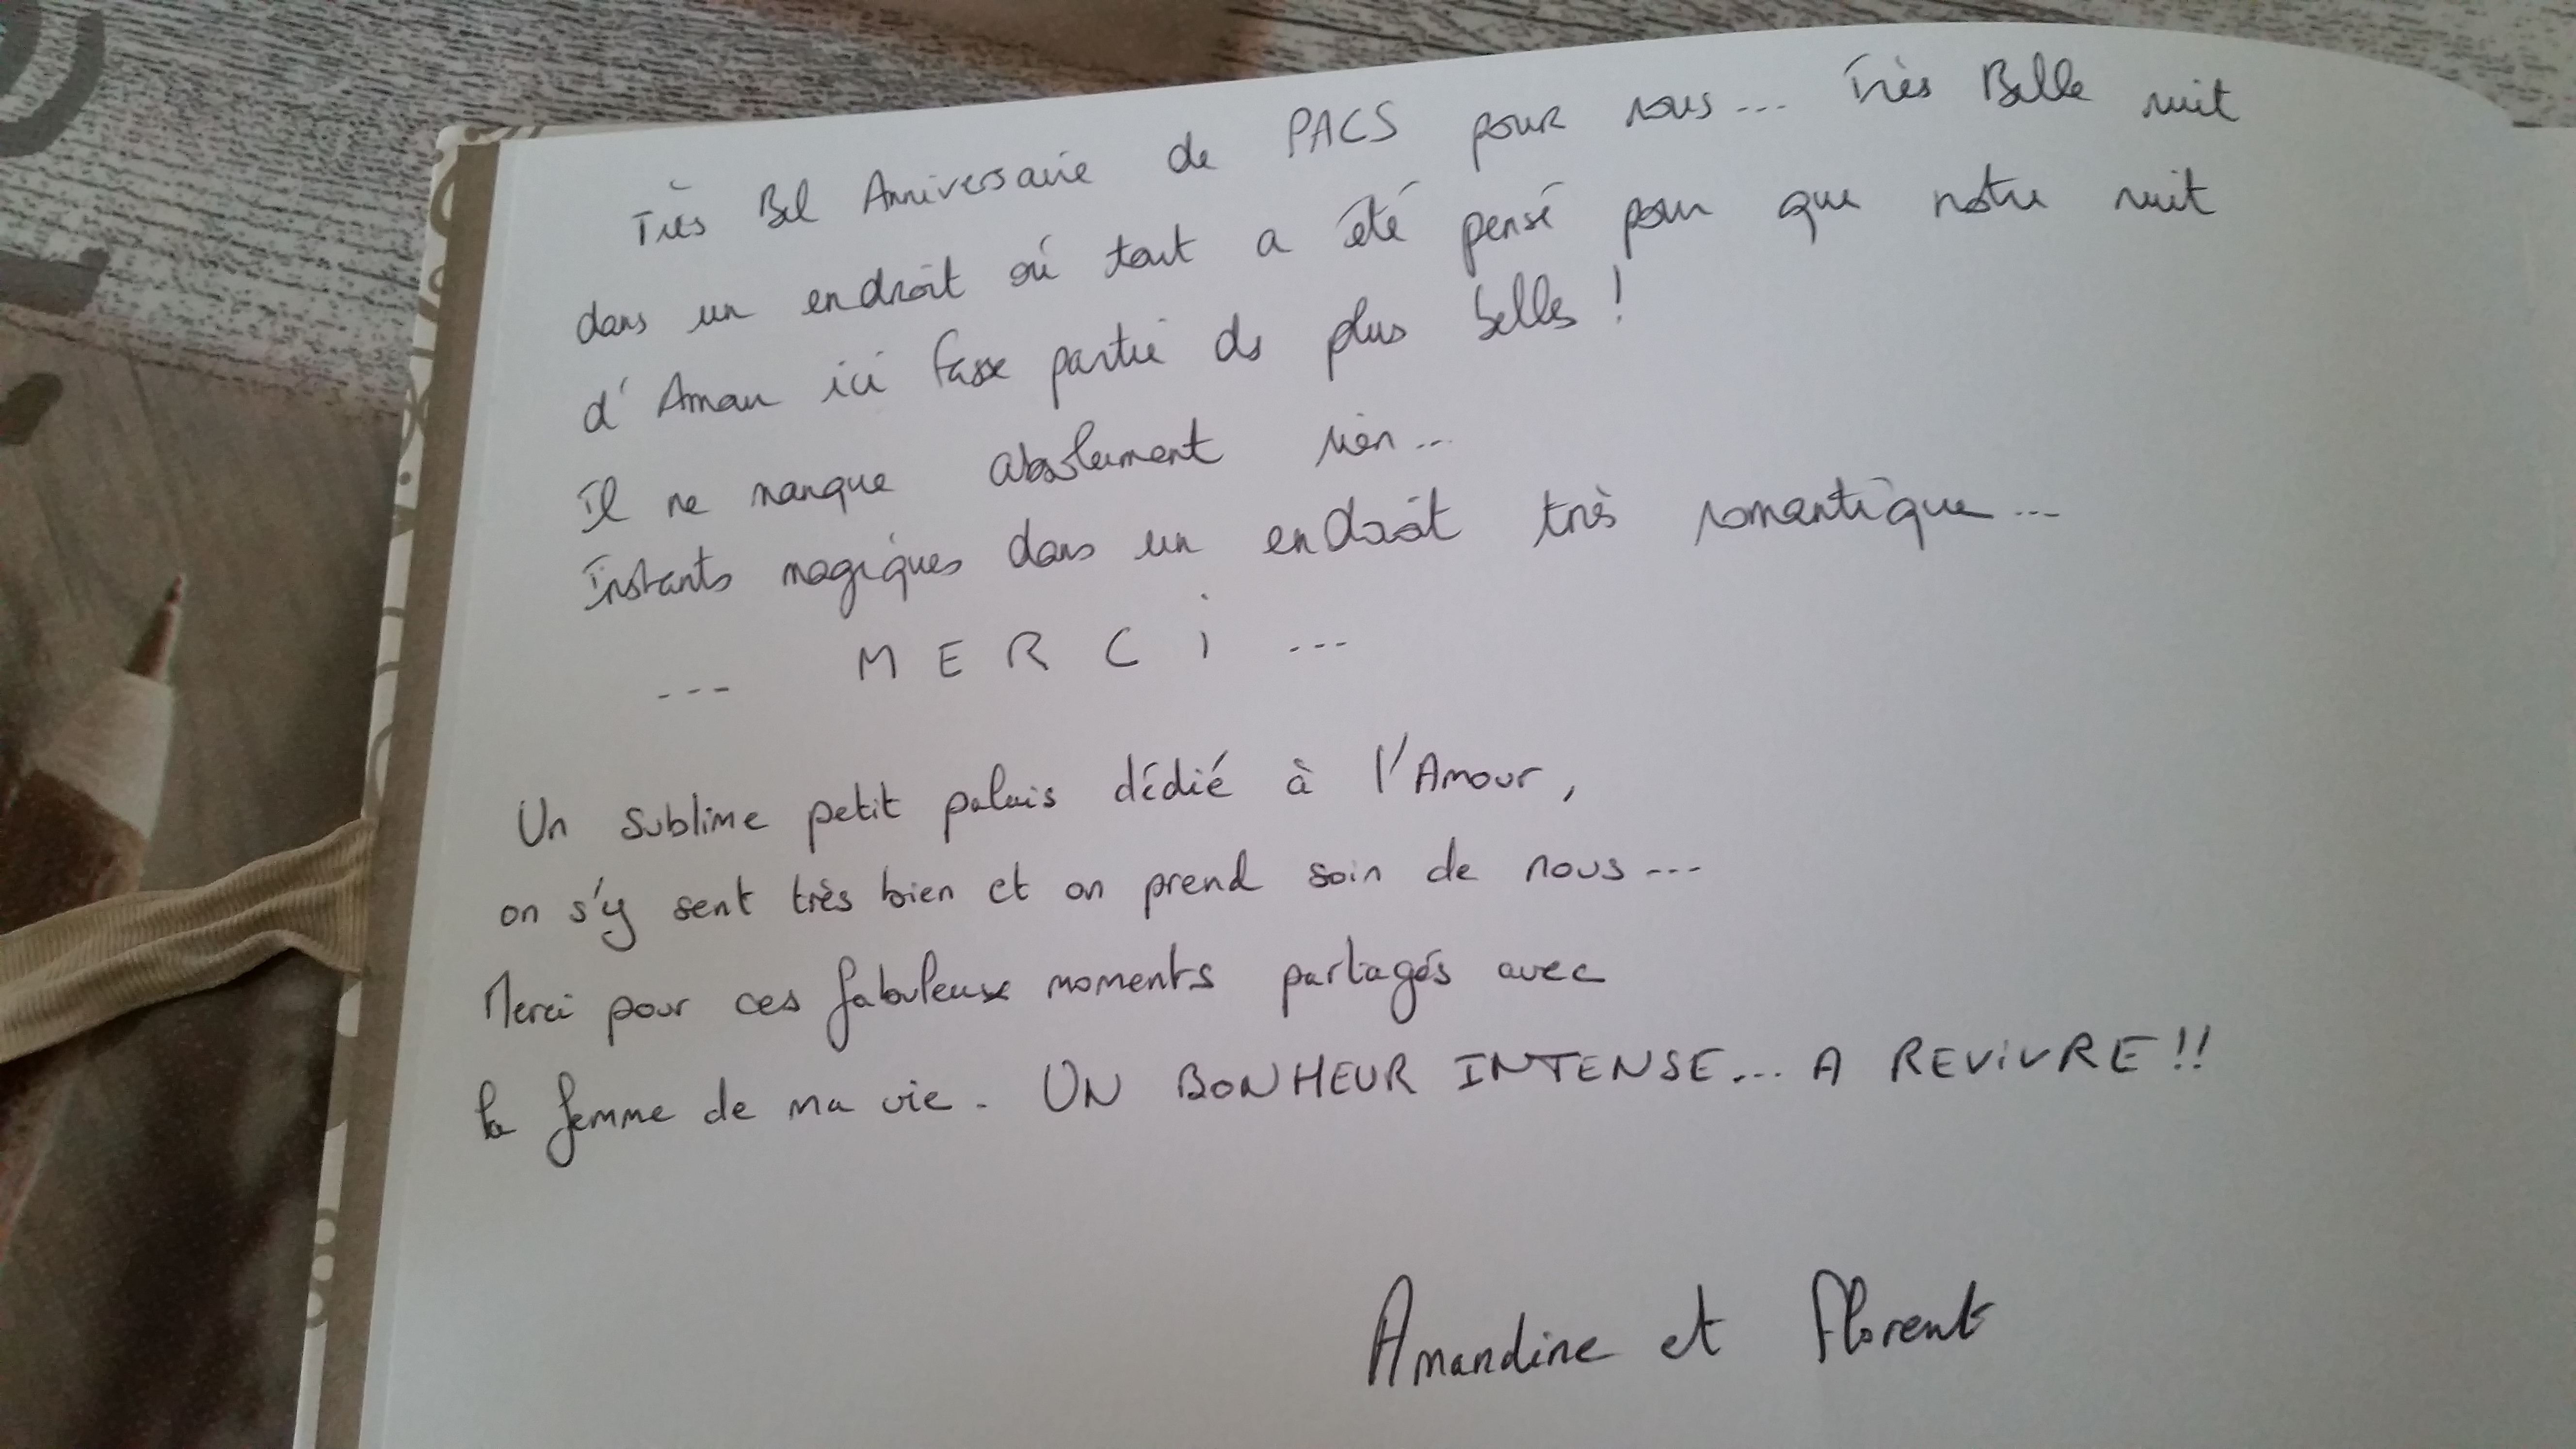 Très Bel Anniversaire de PACS pour nous... Très Belle nuit
dans un endroit où tout a été pensé pour que notre nuit
d'Amour ici fasse partie des plus belles !
Il ne manque absolument rien...
Instants magiques dans un endroit très romantique...
... MERCi ...
Un sublime petit palais dédié à l'Amour,
on s'y sent très bien et on prend soin de nous...
Merci pour ces fabuleux moments partagés avec
la femme de ma vie. UN BONHEUR INTENSE... A REViVRE !!
Amandine et Florent